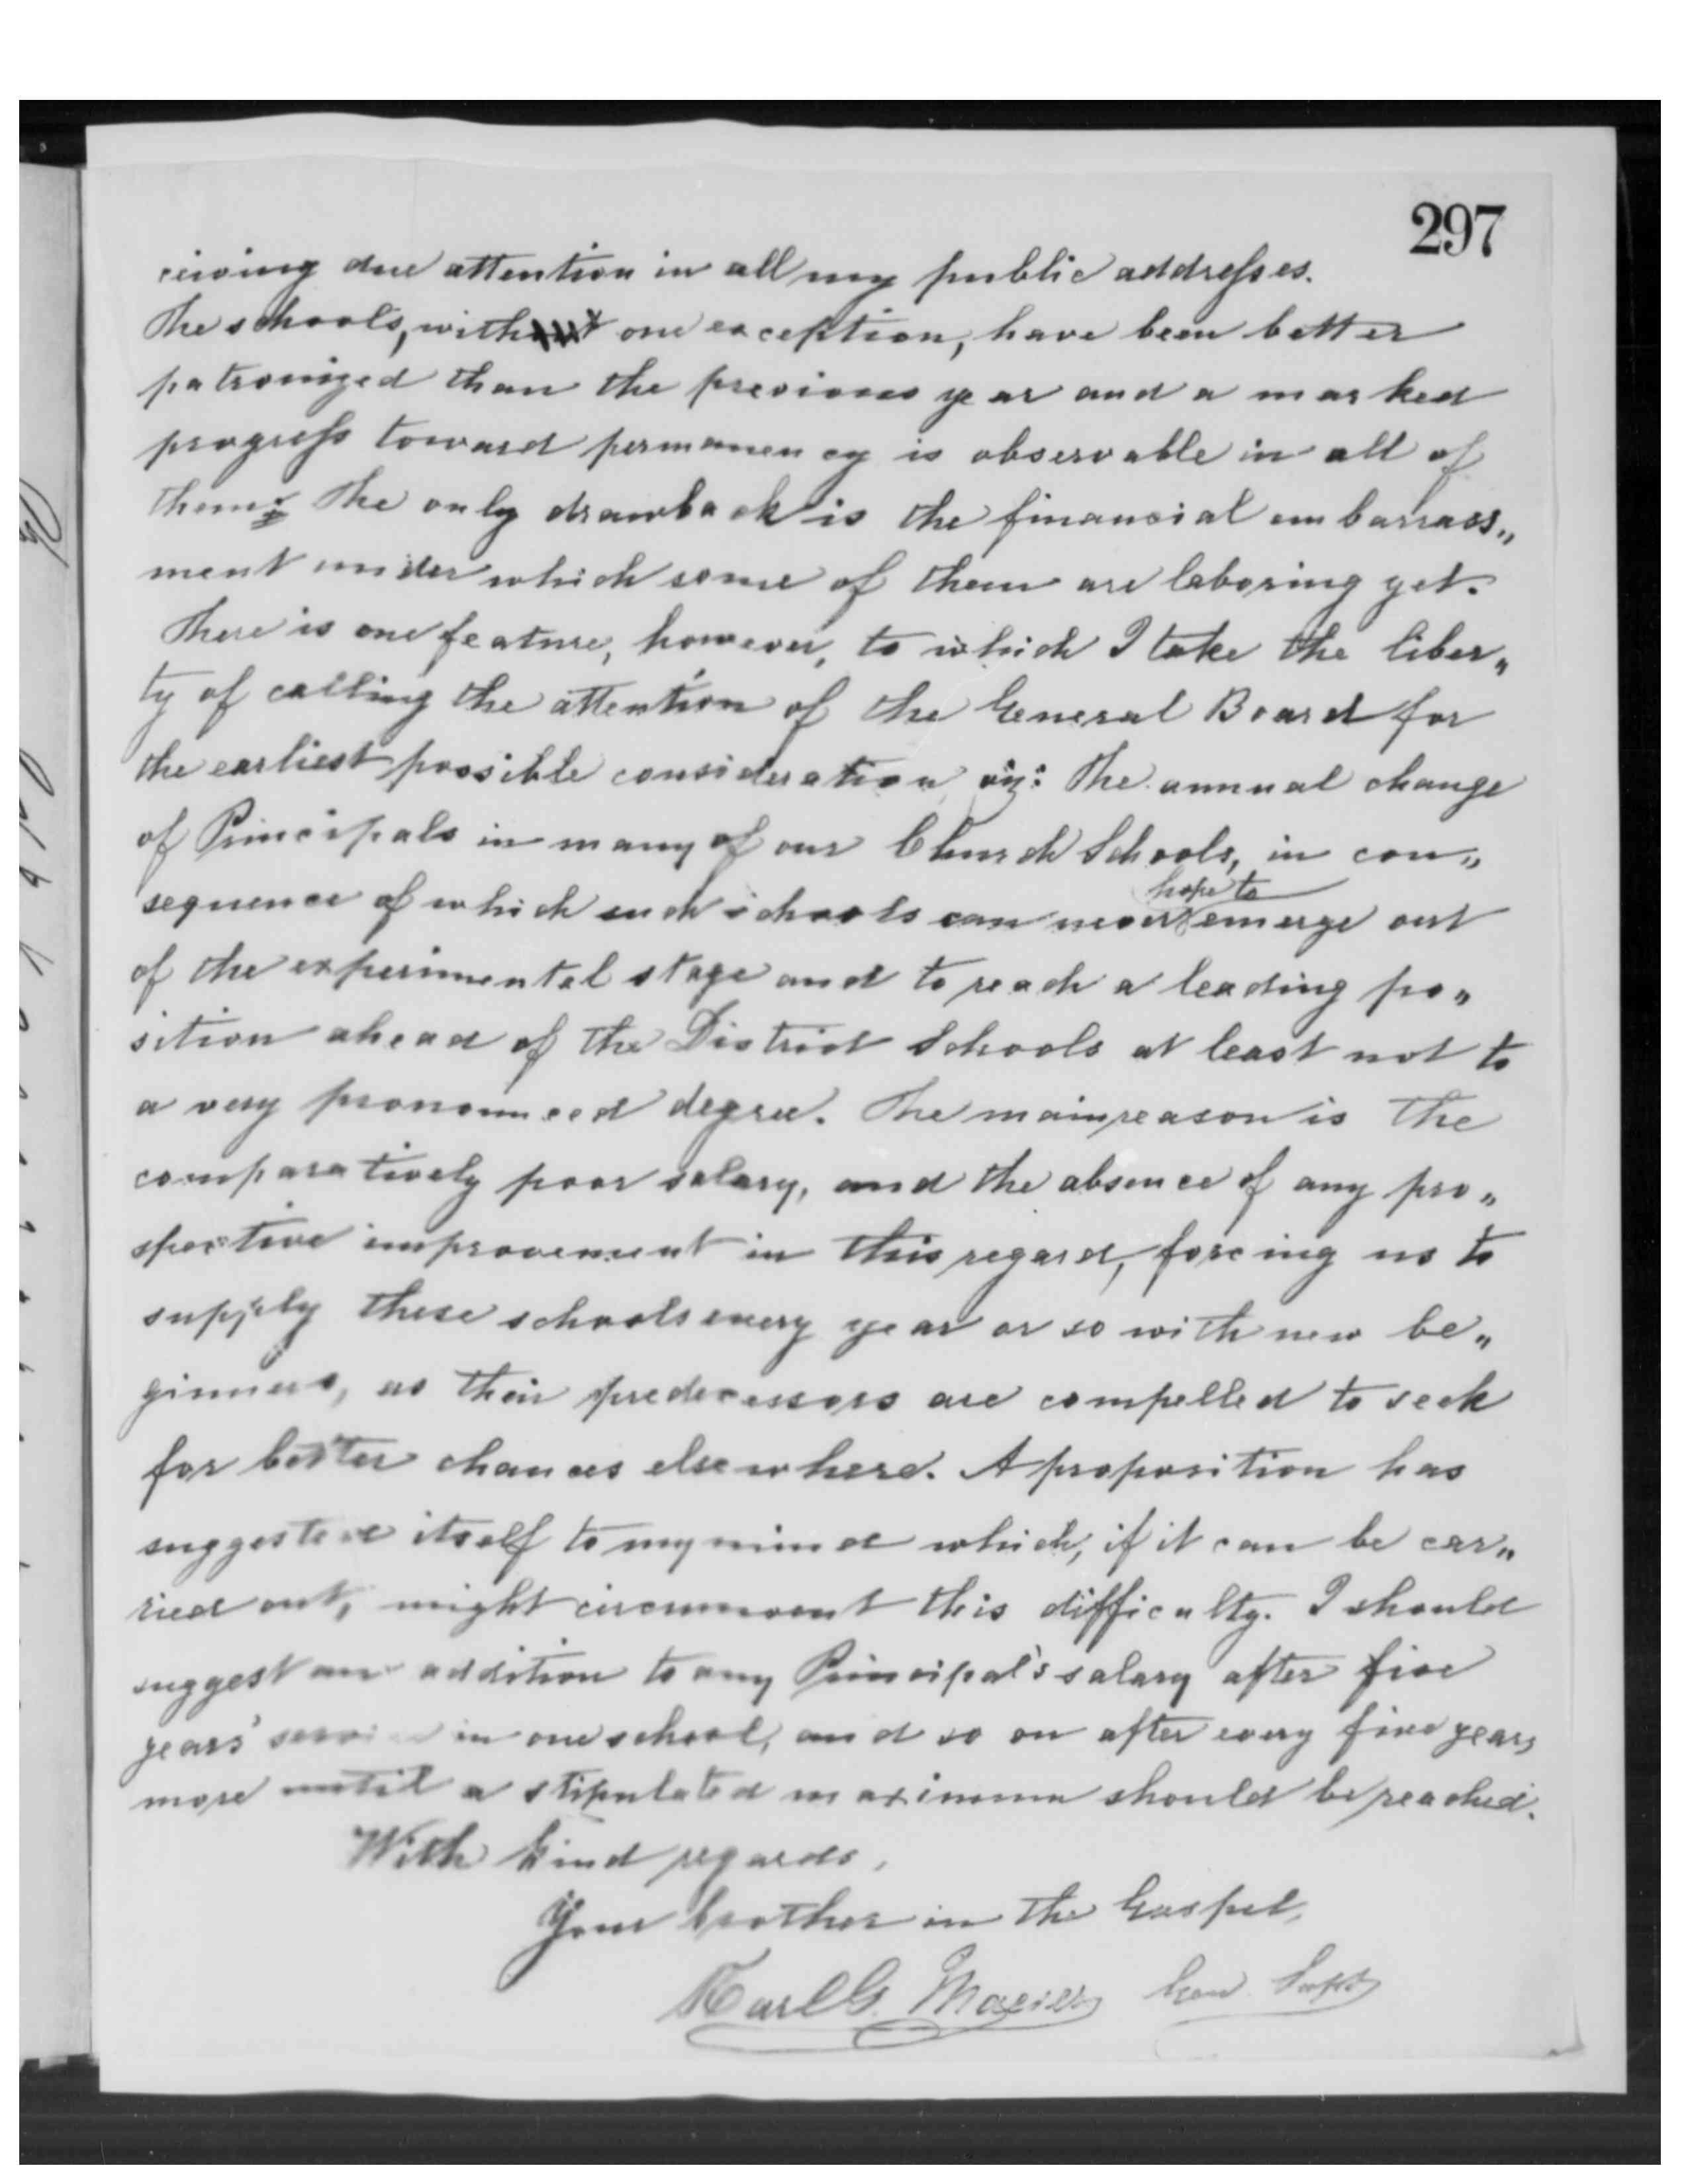 297
ceiving due attention in all my public addresses.
The schools, with one exception, have been better
patronized than the previous year and a marked
progress toward permanency is observable in all of
them. The only drawback is the financial embarrass„
ment under which some of them are laboring yet.
There is one feature, however, to which I take the liber„
ty of calling the attention of the General Board for
the earliest possible consideration viz: The annual change
of Principals in many of our Church Schools, in con„
hope to
sequence of which such schools can never emerge out
of the experimental stage and to reach a leading po„
sition ahead of the District Schools at least not to
a very pronounced degree. The main reason is the
comparatively poor salary, and the absence of any pro„
spective improvement in this regard, forcing us to
supply these schools every year or so with new be„
ginners, as their predecessors are compelled to seek
for better chances elsewhere. A proposition has
suggested itself to my mind which, if it can be car„
ried out, might circumvent this difficulty. I should
suggest an addition to any Principal's salary after five
years' service in one school, and so on after every five years
more until a stipulated maximum should be reached.
With kind regards,
Your brother in the Gospel,
Karl G. Maeser Gen. Supt